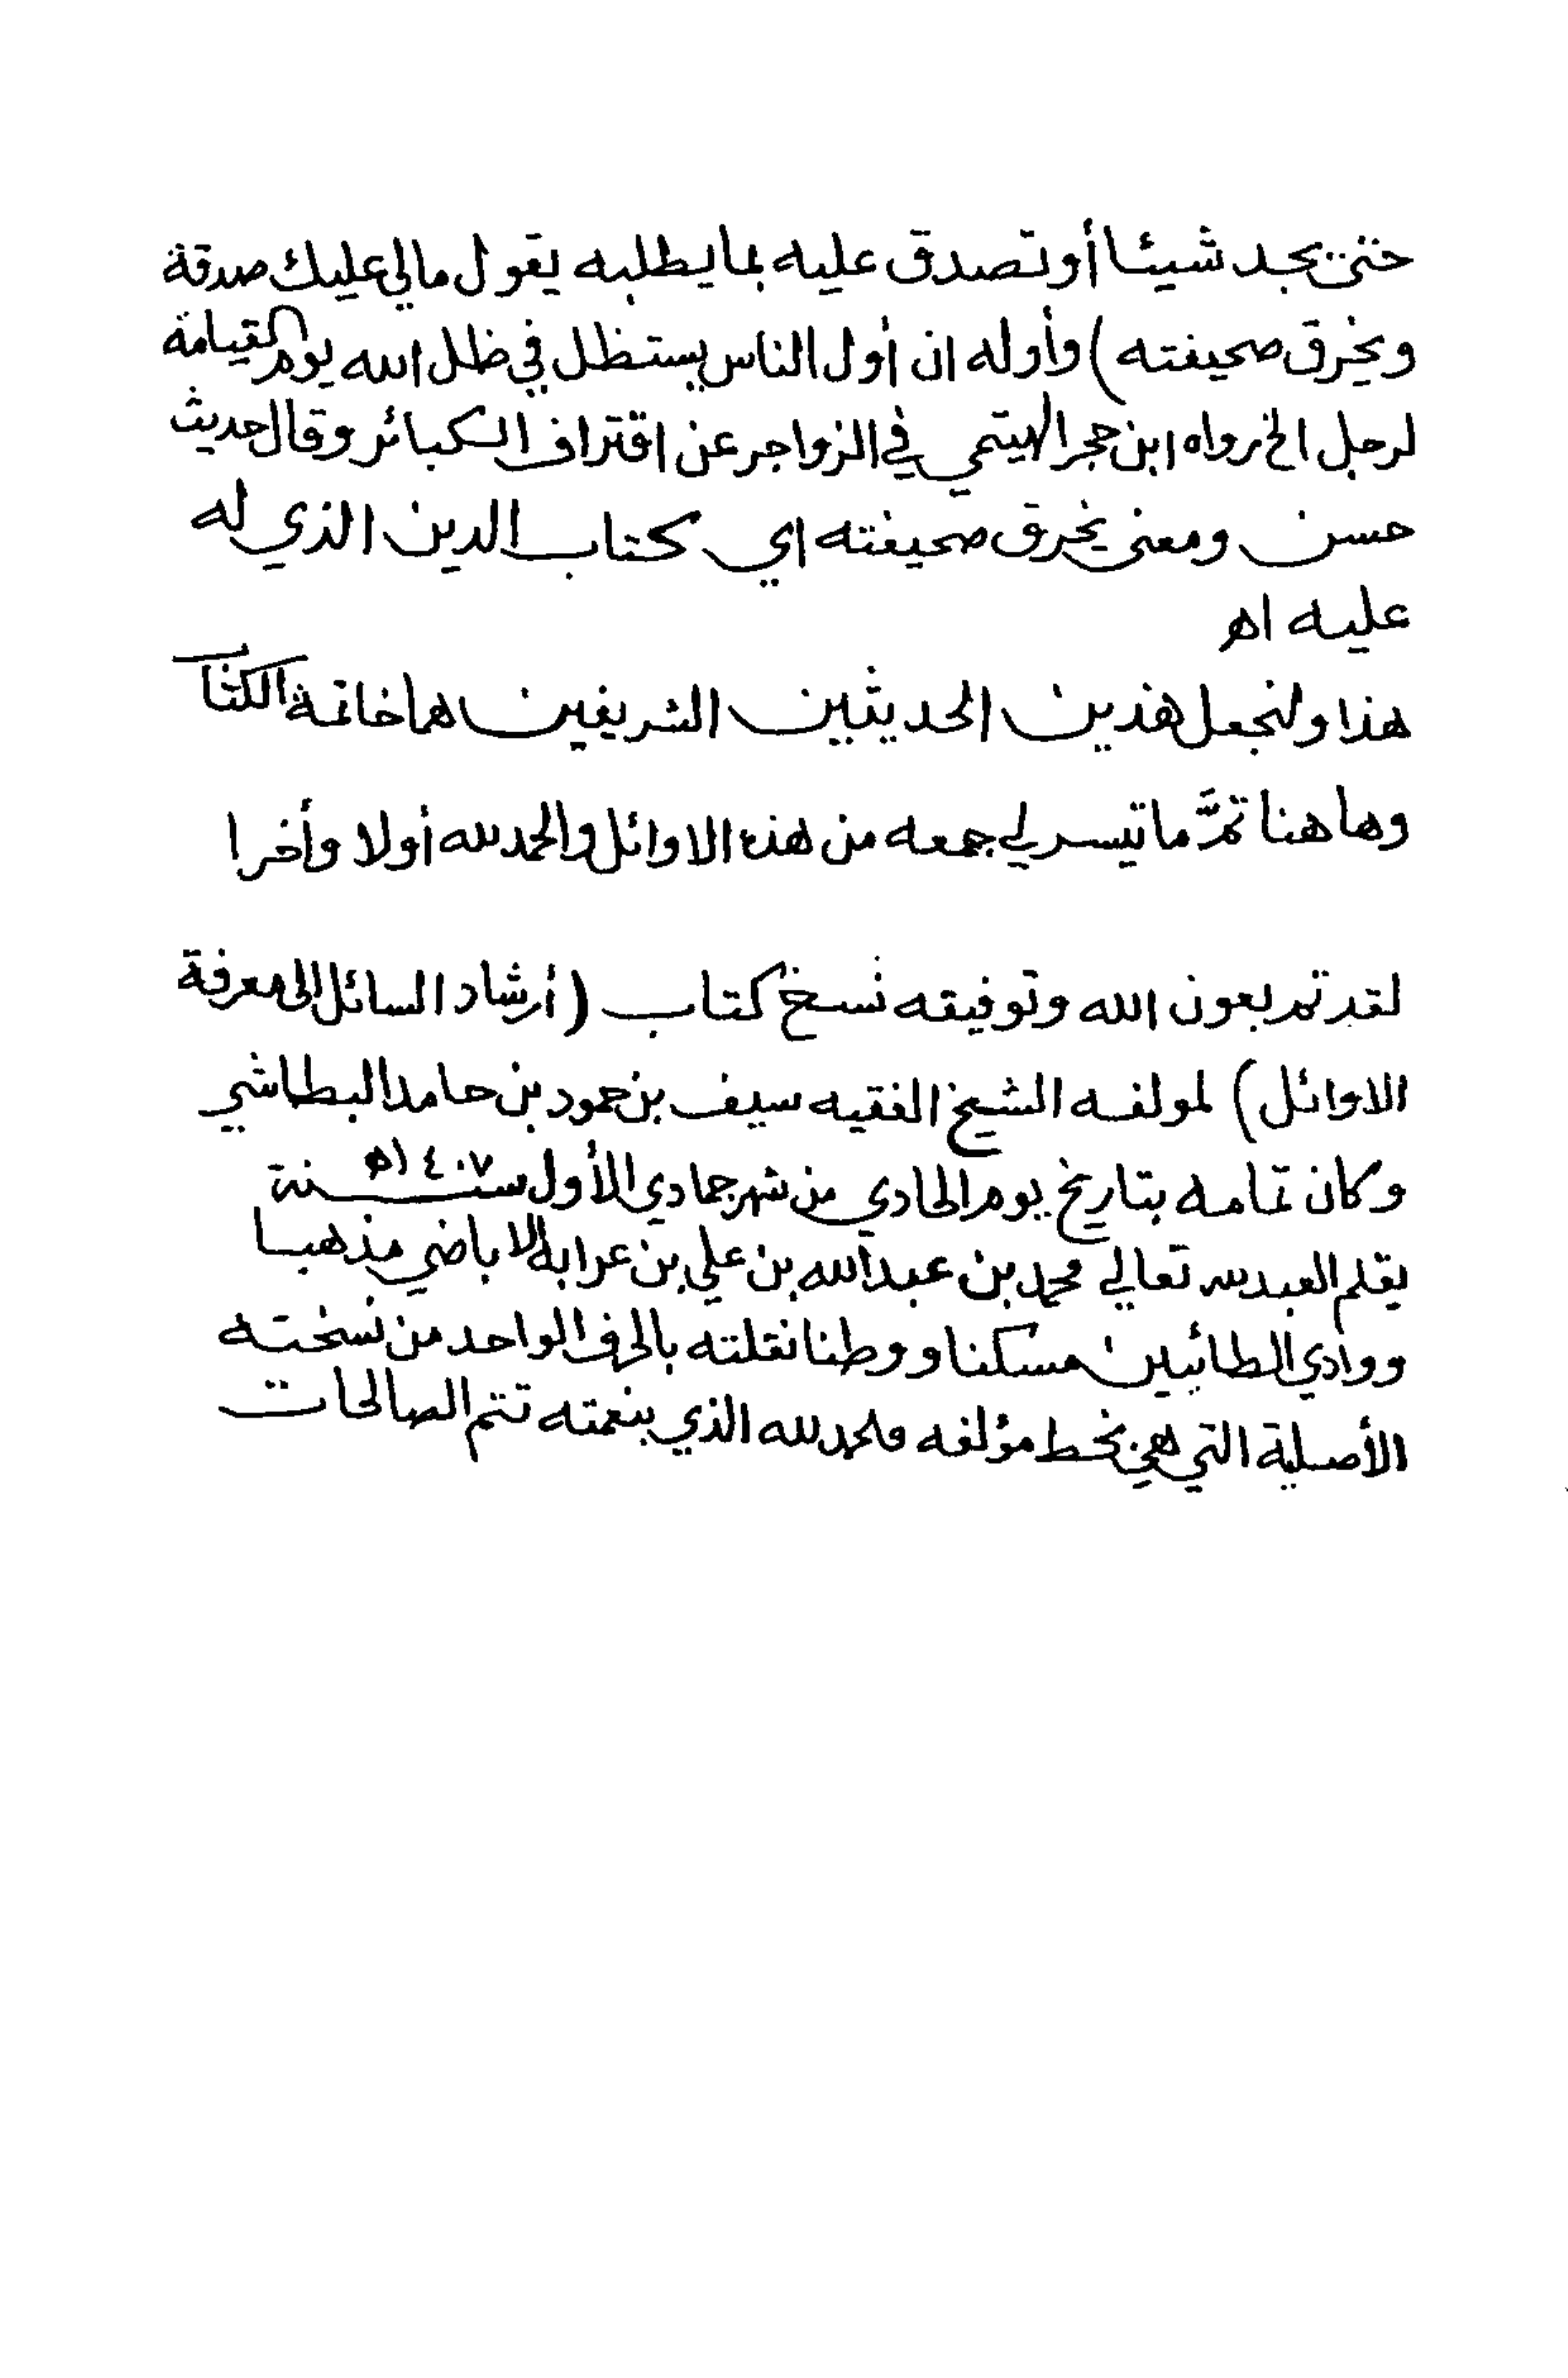 حتى يجد شيئا أو تصدق عليه بما يطلبه يقول مالي عليك صدقة
ويخرق صحيفته) وأوله ان أول الناس يستظل في ظل الله يوم القيامة
لرجل الخ رواه ابن حجر الهيتمي في الزواجر عن اقتراف الكبائر وقال حديث
حسن ومعنى يخرق صحيفته اي كتاب الدين الذي له
عليه اه
هذا ولنجعل هذين الحديثين الشريفين هما خاتمة الكتاب
وها هنا تمَّ ما تيسر لي جمعه من هذه الاوائل والحمد لله أولا وأخرا
لقد تم بعون الله وتوفيقه نسخ كتاب (أرشاد السائل إلى معرفة
الاوائل) لمولفه الشيخ الفقيه سيف بن حمود بن حامد البطاشي
وكان تمامه بتاريخ يوم الحادي من شهر جمادي الأول سنة ١٤٠٧ه
بقلم العبد لله تعالي محمد بن عبدالله بن علي بن عرابة الاباضي مذهبا
ووادي الطائيين مسكنا ووطنا نقلته بالحرف الواحد من نسخته
الأصلية التي هي بخط مؤلفه فلحمد لله الذي بنعمته تتم الصالحات